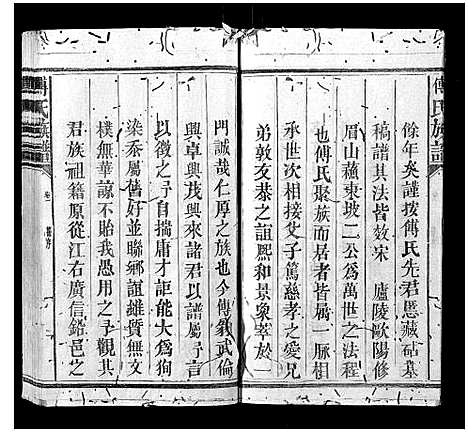 傅氏族譜
餘年矣謹按傅氏先君慝藏砧集
稿譜其法皆效宋 廬陵歐陽修
眉山蘇東坡二公為萬世之法程
也傅氏聚族而居者皆一脈相
承世次相接父子篤慈孝之愛兄
弟敦友恭之誼熙和景象萃於一
門誠哉仁厚之族也今傅毅武倫
興卓興茂興來諸君以譜屬予言
以徵之予自揣庸才詎能大為狥
染忝屬借好並聯鄉誼雖質無文
樸無華諒不貽我愚用之予觀其
君族祖籍原從江右廣信鉛邑之
傅氏族譜